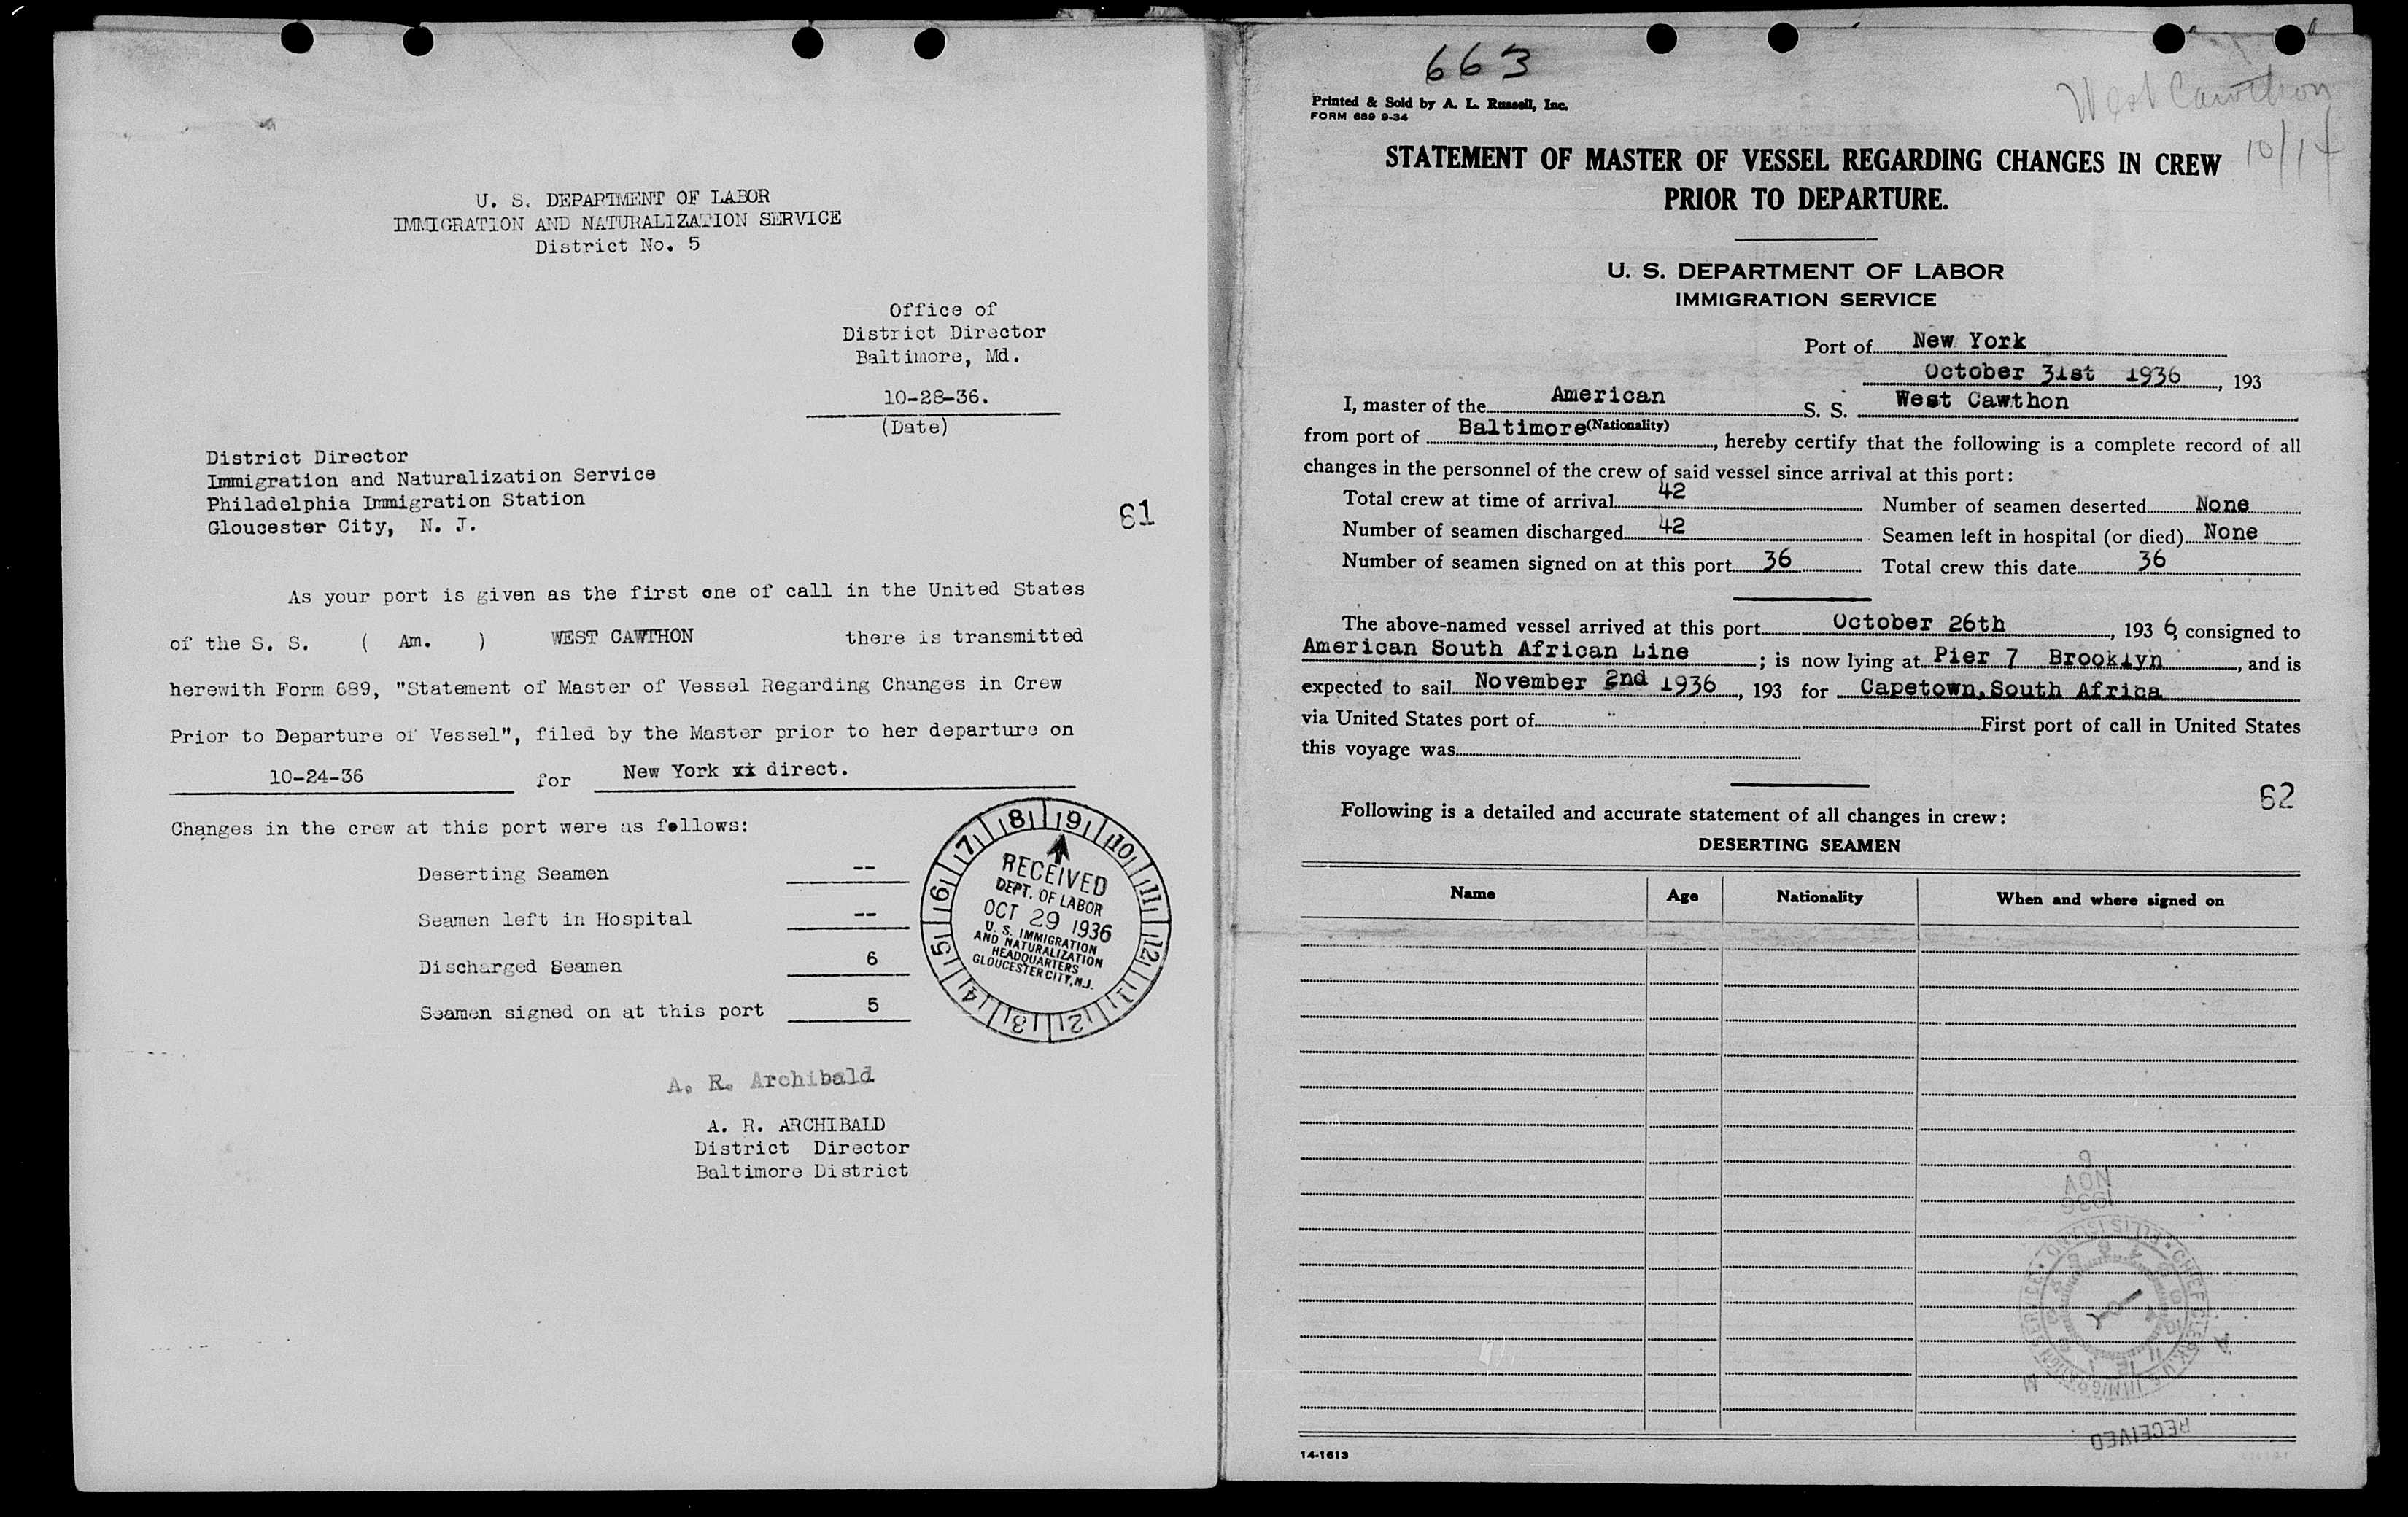 U. S. DEPARTMENT OF LABOR
IMMIGRATION AND NATURALIZATION SERVICE
District No. 5
Office of
District Director
Baltimore, Md.
10-28-36.
(Date)
District Director
Immigration and Naturalization Service
Philadelphia Immigration Station
Gloucester City, N. J.
61
As your port is given as the first one of call in the United States
of the S. S. ( Am. ) WEST CAWTHON there is transmitted
herewith Form 689, "Statement of Master of Vessel Regarding Changes in Crew
Prior to Departure of Vessel", filed by the Master prior to her departure on
10-24-36 for New York xi direct.
Changes in the crew at this port were as follows:
Deserting Seamen --
Seamen left in Hospital --
Discharged Seamen 6
Seamen signed on at this port 5
1 2 3 4 5 6 7 8 9 10 11 12
RECEIVED
DEPT. OF LABOR
OCT 29 1936
U. S. IMMIGRATION
AND NATURALIZATION
HEADQUARTERS
GLOUCESTER CITY, N.J.
A. R. Archibald
A. R. ARCHIBALD
District Director
Baltimore District
663
West Cawthon
10/14
Printed & Sold by A. L. Russell, Inc.
FORM 689 9-34
STATEMENT OF MASTER OF VESSEL REGARDING CHANGES IN CREW
PRIOR TO DEPARTURE.
U. S. DEPARTMENT OF LABOR
IMMIGRATION SERVICE
Port of New York
October 31st 1936, 193
I, master of the American S. S. West Cawthon
(Nationality)
from port of Baltimore, hereby certify that the following is a complete record of all
changes in the personnel of the crew of said vessel since arrival at this port:
Total crew at time of arrival 42 Number of seamen deserted None
Number of seamen discharged 42 Seamen left in hospital (or died) None
Number of seamen signed on at this port 36 Total crew this date 36
The above-named vessel arrived at this port October 26th, 1936, consigned to
American South African Line; is now lying at Pier 7 Brooklyn, and is
expected to sail November 2nd 1936, 193 for Capetown, South Africa
via United States port of First port of call in United States
this voyage was
62
Following is a detailed and accurate statement of all changes in crew:
DESERTING SEAMEN
Name Age Nationality When and where signed on
NOV
1936
RECEIVED
14-1613